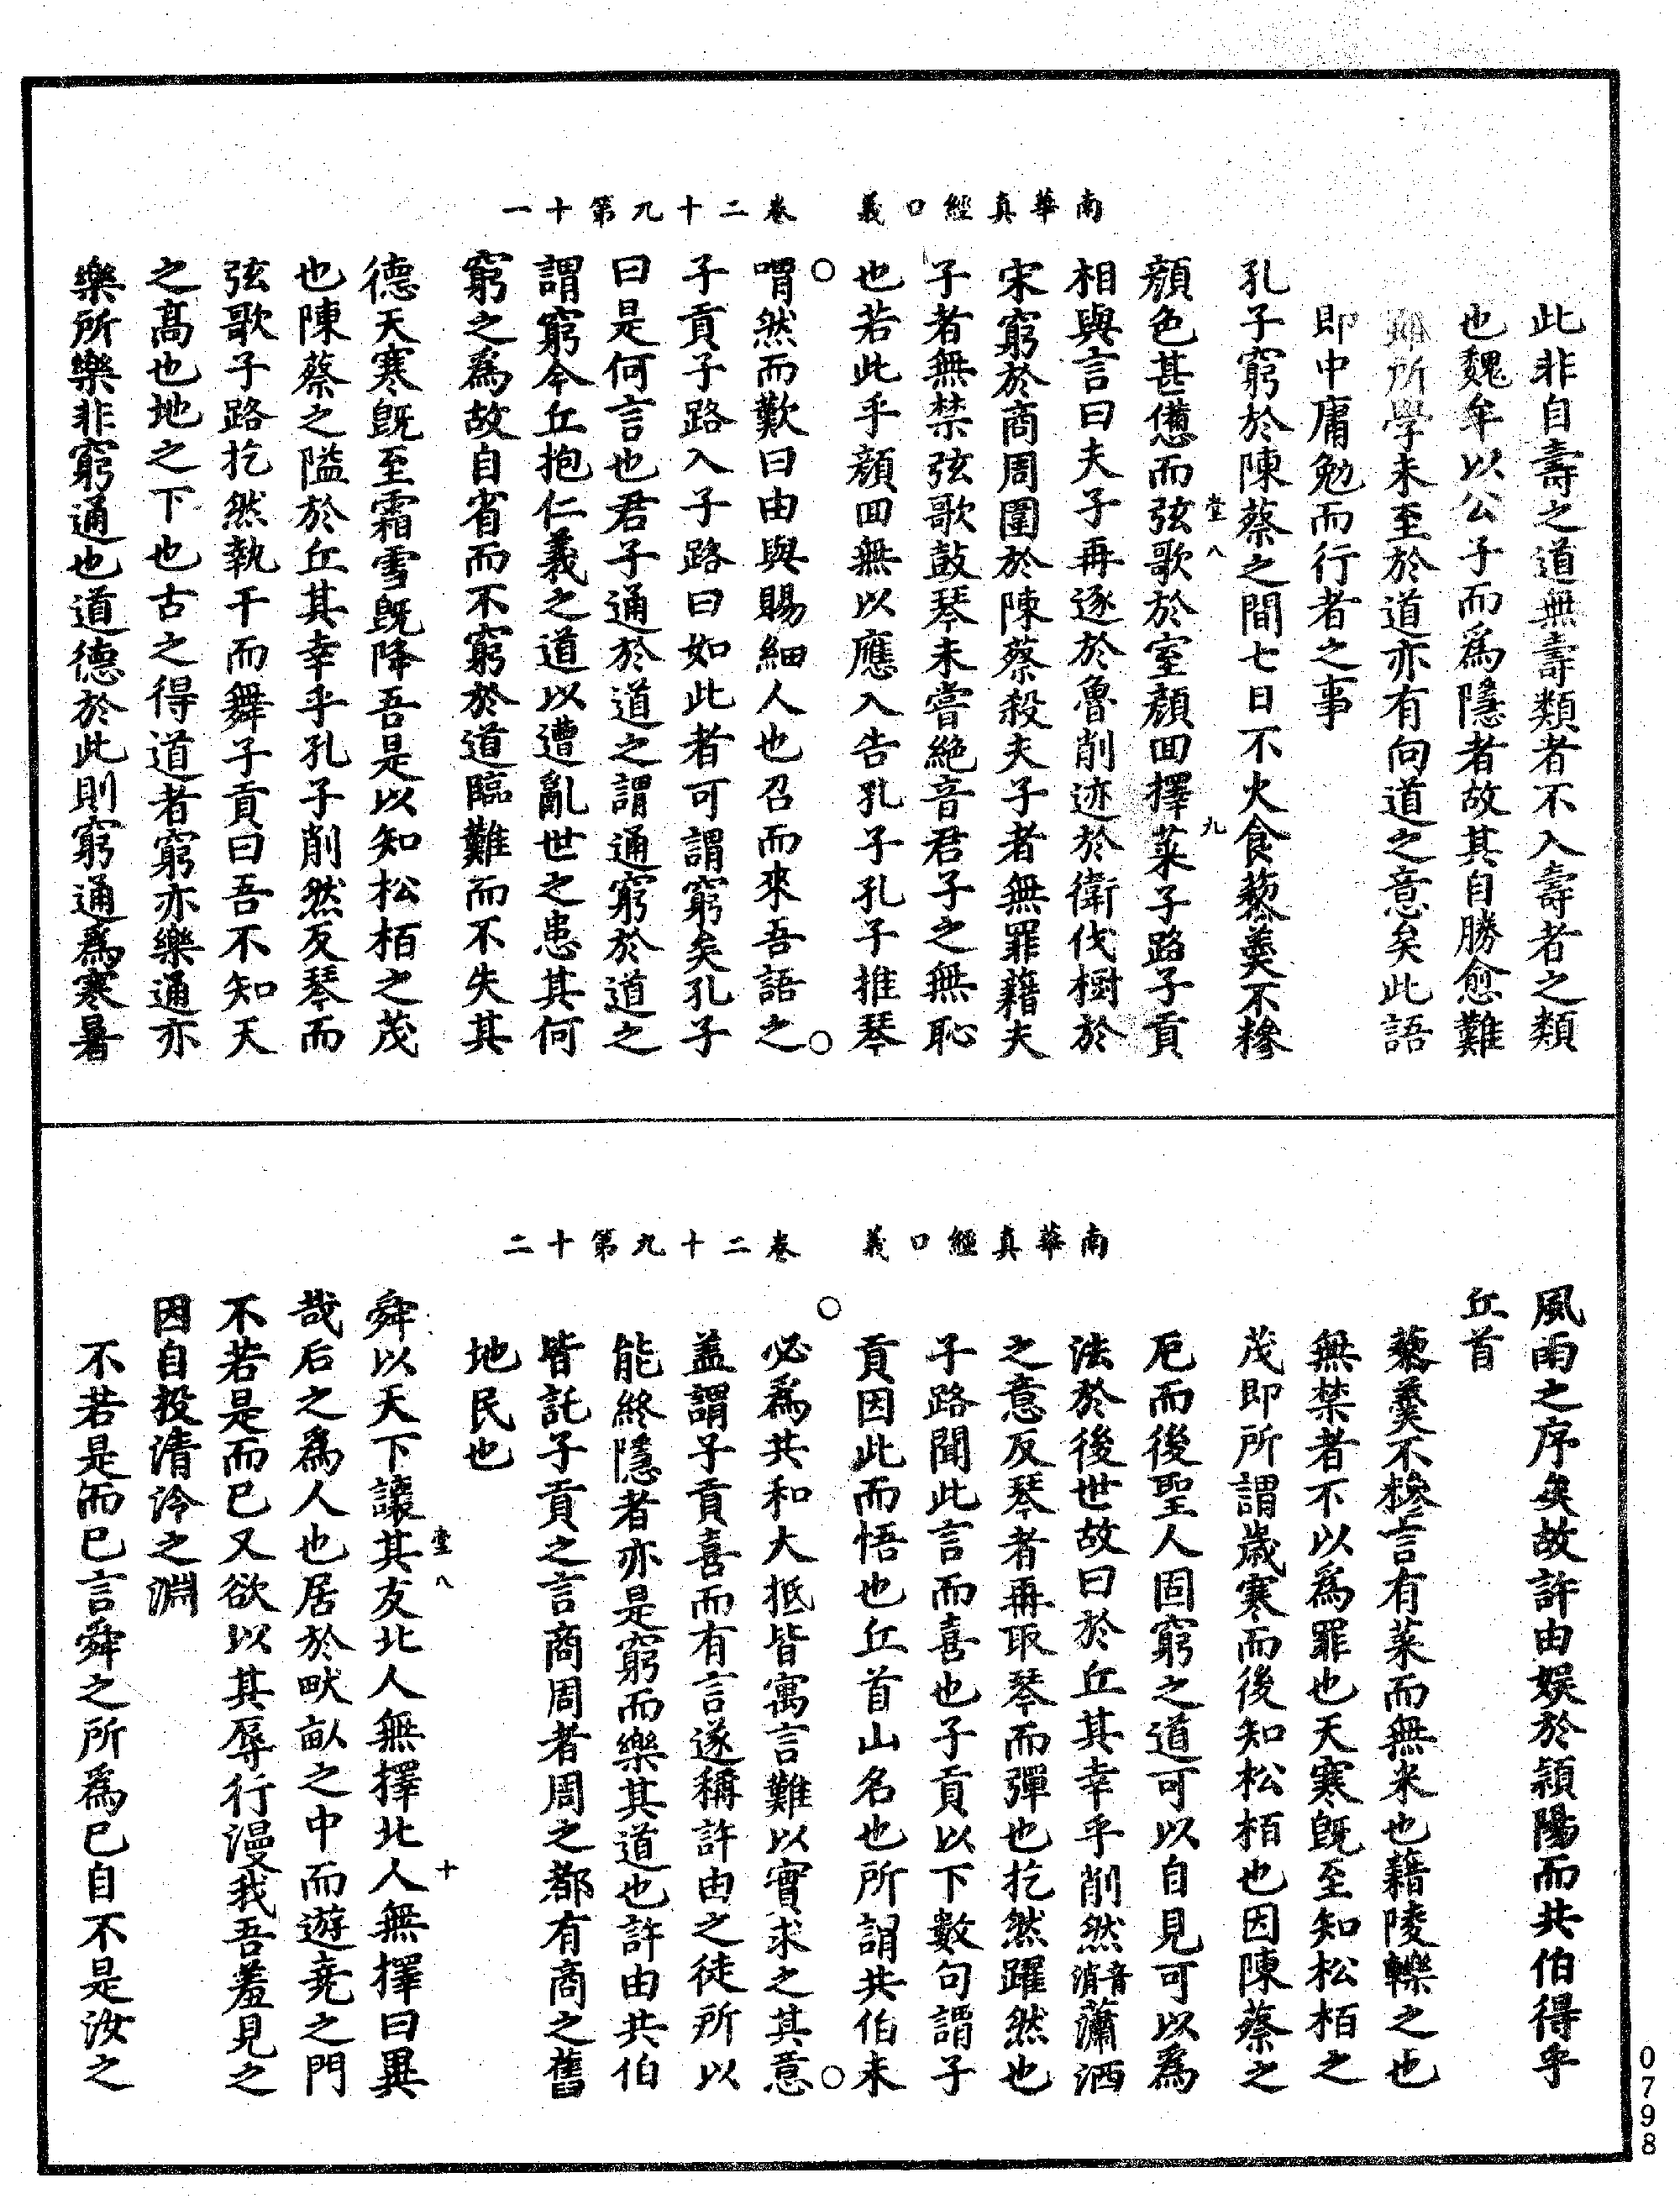 南華真經口義　卷二十九第十一
此非自壽之道無壽類者不入壽者之類
也魏牟以公子而爲隱者故其自勝愈難
雖所學未至於道亦有向道之意矣此語
即中庸勉而行者之事
孔子窮於陳蔡之間七日不火食藜羹不糝
顏色甚憊而弦歌於室顏回擇菜子路子貢
堂八　九
相與言曰夫子再逐於魯削迹於衛伐樹於
宋窮於商周圍於陳蔡殺夫子者無罪藉夫
子者無禁弦歌鼓琴未嘗絶音君子之無恥
也若此乎顏回無以應入告孔子孔子推琴
喟然而歎曰由與賜細人也召而來吾語之
子貢子路入子路曰如此者可謂窮矣孔子
曰是何言也君子通於道之謂通窮於道之
謂窮今丘抱仁義之道以遭亂世之患其何
窮之爲故自省而不窮於道臨難而不失其
德天寒旣至霜雪旣降吾是以知松栢之茂
也陳蔡之隘於丘其幸乎孔子削然反琴而
弦歌子路扢然執干而舞子貢曰吾不知天
之高也地之下也古之得道者窮亦樂通亦
樂所樂非窮通也道德於此則窮通爲寒暑
南華真經口義　卷二十九第十二
風雨之序矣故許由娛於頴陽而共伯得乎
丘首
藜羹不糝言有菜而無米也藉陵轢之也
無禁者不以爲罪也天寒旣至知松栢之
茂即所謂歲寒而後知松栢也因陳蔡之
厄而後聖人固窮之道可以自見可以爲
法於後世故曰於丘其幸乎削然音消蕭洒
之意反琴者再取琴而彈也扢然躍然也
子路聞此言而喜也子貢以下數句謂子
貢因此而悟也丘首山名也所謂共伯未
必爲共和大抵皆寓言難以實求之其意
盖謂子貢喜而有言遂稱許由之徒所以
能終隱者亦是窮而樂其道也許由共伯
皆託子貢之言商周者周之都有商之舊
地民也
舜以天下讓其友北人無擇北人無擇曰異
堂八　十
哉后之爲人也居於畎畝之中而遊堯之門
不若是而已又欲以其辱行漫我吾羞見之
因自投清泠之淵
不若是而已言舜之所爲已自不是汝之
0798